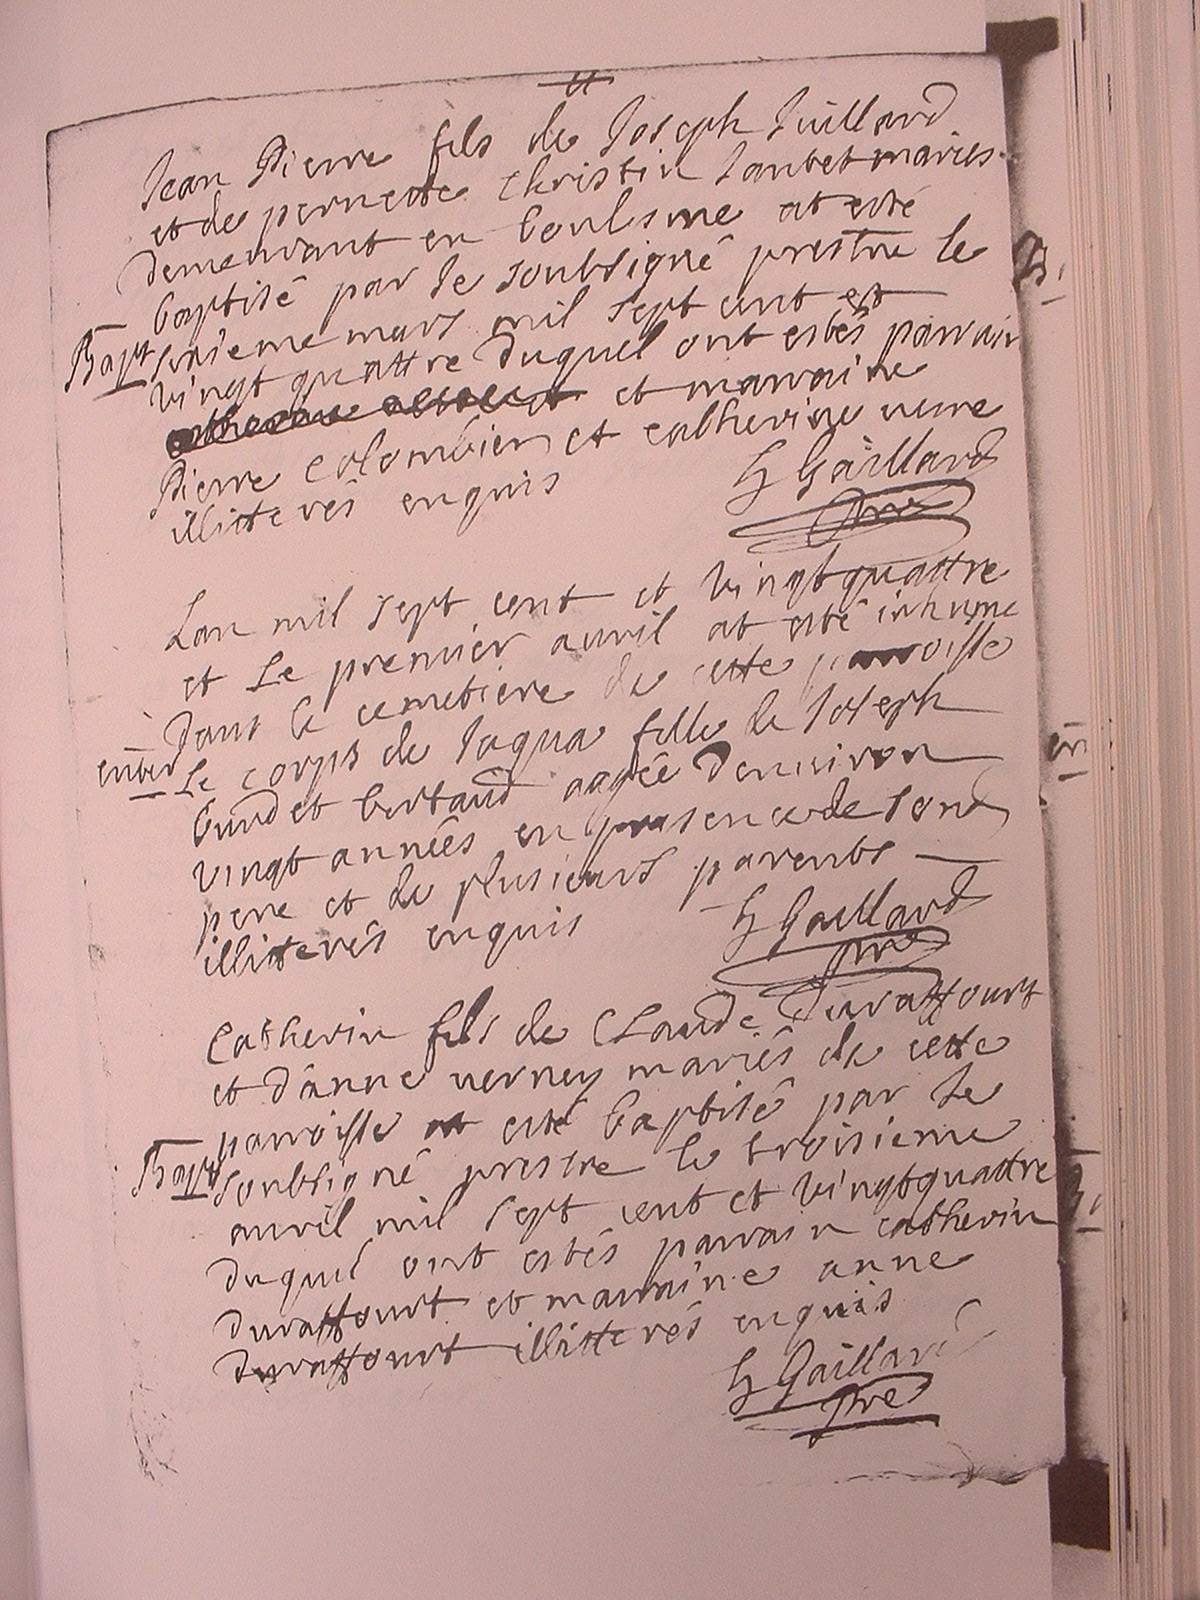 Jean Pierre fils de Joseph Juillard
et de pernette Christin Jantet mariés
demeurant en boulisme at esté
baptisé par le soubsigné prestre le
Bapt
seisieme mars mil sept cent et
vingt quattre duquel ont estés parrain
et marraine
Pierre colombier et catherine
illitterés enquis
h Gaillard
pre
Lan mil sept cent et vingt quattre
et Le premier auril at esté inhume
Dans le cemetiere de cette parroisse
enter
Le corps de Jaqua fille de Joseph
bertaud aagée denuiron
vingt années en presence de sond
pere et de plusieurs parents
illitterés enquis
h Gaillard
pre
Catherin fils de Claude Duraffourt
et d'anne verney mariés de cette
parroisse at esté baptisé par le
Bapt
soubsigné prestre le troisieme
auril mil sept cent et vingt quattre
duquel ont estés parrain catherin
duraffourt et marraine anne
duraffourt illitterés enquis
h Gaillard
pre